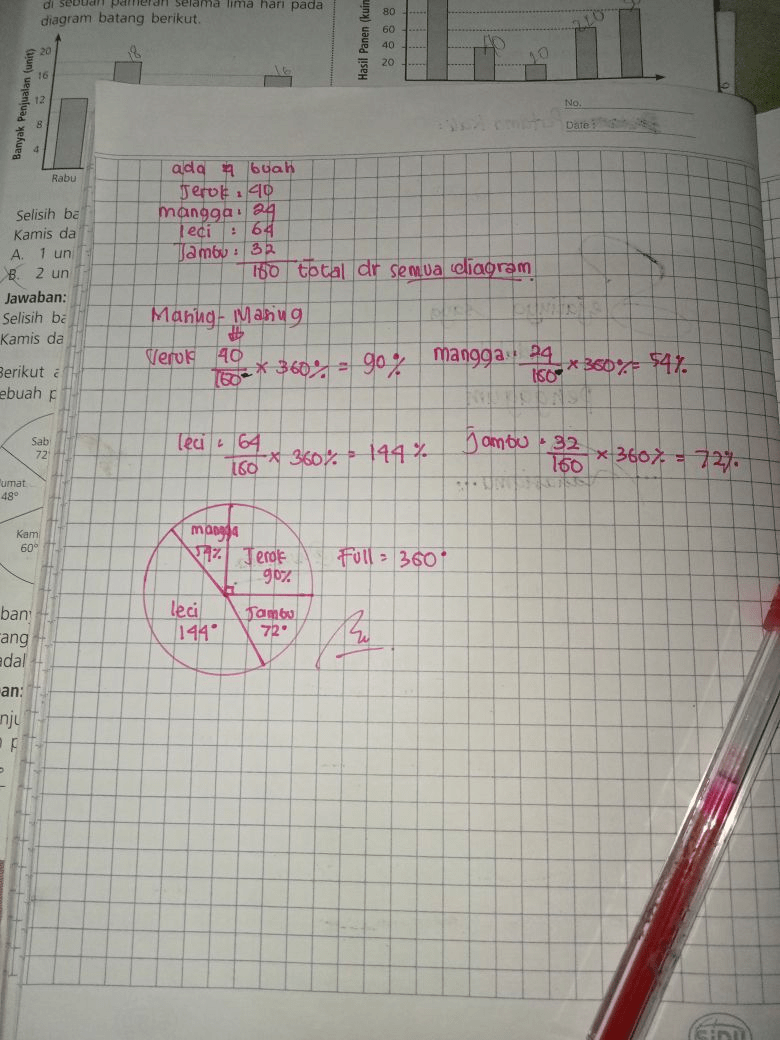 di sebuah pameran selama lima hari pada
diagram batang berikut.
Banyak Penjualan (unit)
20
16
12
8
4
18
16
Rabu
80
60
40
20
No.
Date :
Selisih ba
Kamis da
A. 1 un
B. 2 un
Jawaban:
Selisih ba
Kamis da
Berikut
ebuah p
Sab
72
umat
48°
Kam
60°
ban
ang
adal
an:
nju
ada 4 buah
Jerok : 40
mangga : 24
leci : 64
Jambu : 32
160 total dr semua diagram.
Maring-Maring
Jerok 40/160 × 360% = 90% mangga : 24/160 × 360% = 54%
leci : 64/160 × 360% = 144% Jambu : 32/160 × 360% = 72%
mangga
54%
Jerok
90%
Full = 360°
leci
144°
Jambu
72°
SiDU